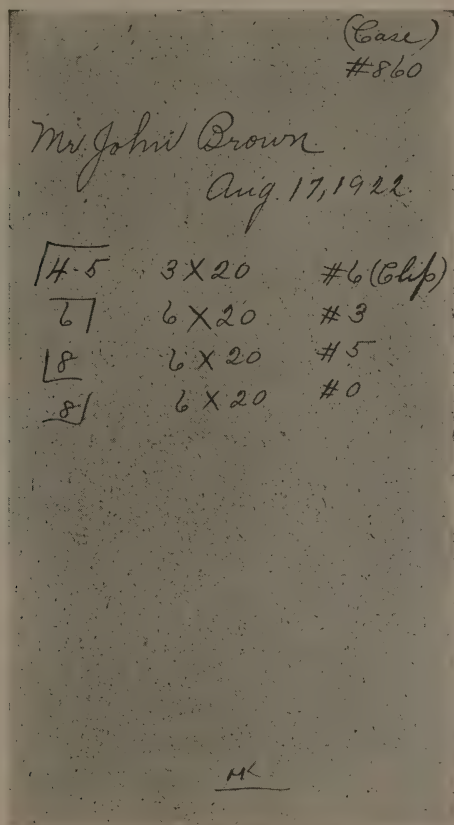 (Case)
#860
Mr. John Brown
Aug. 17, 1922.
4-5 3 X 20 #6 (Clip)
6 6 X 20 #3
8 6 X 20 #5
8 6 X 20 #0
MK